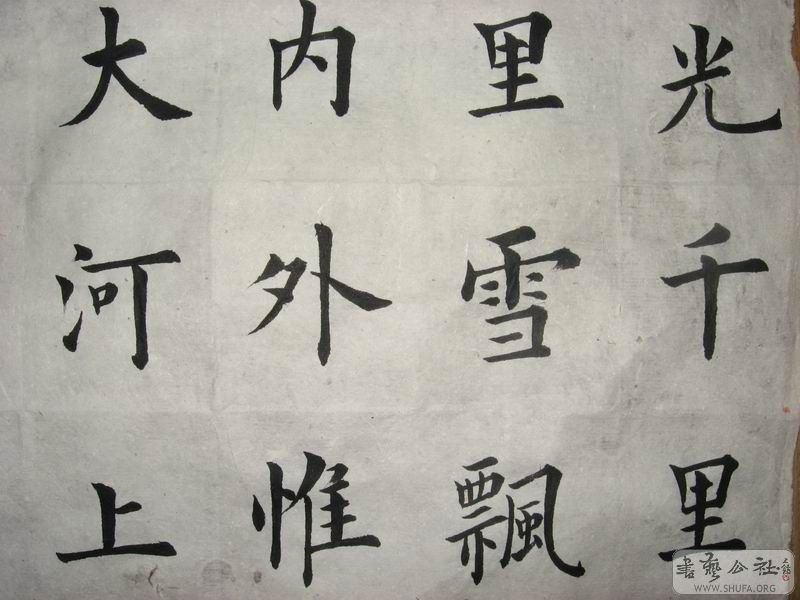 光千里
里雪飄
内外惟
大河上
書藝公社
WWW.SHUFA.ORG